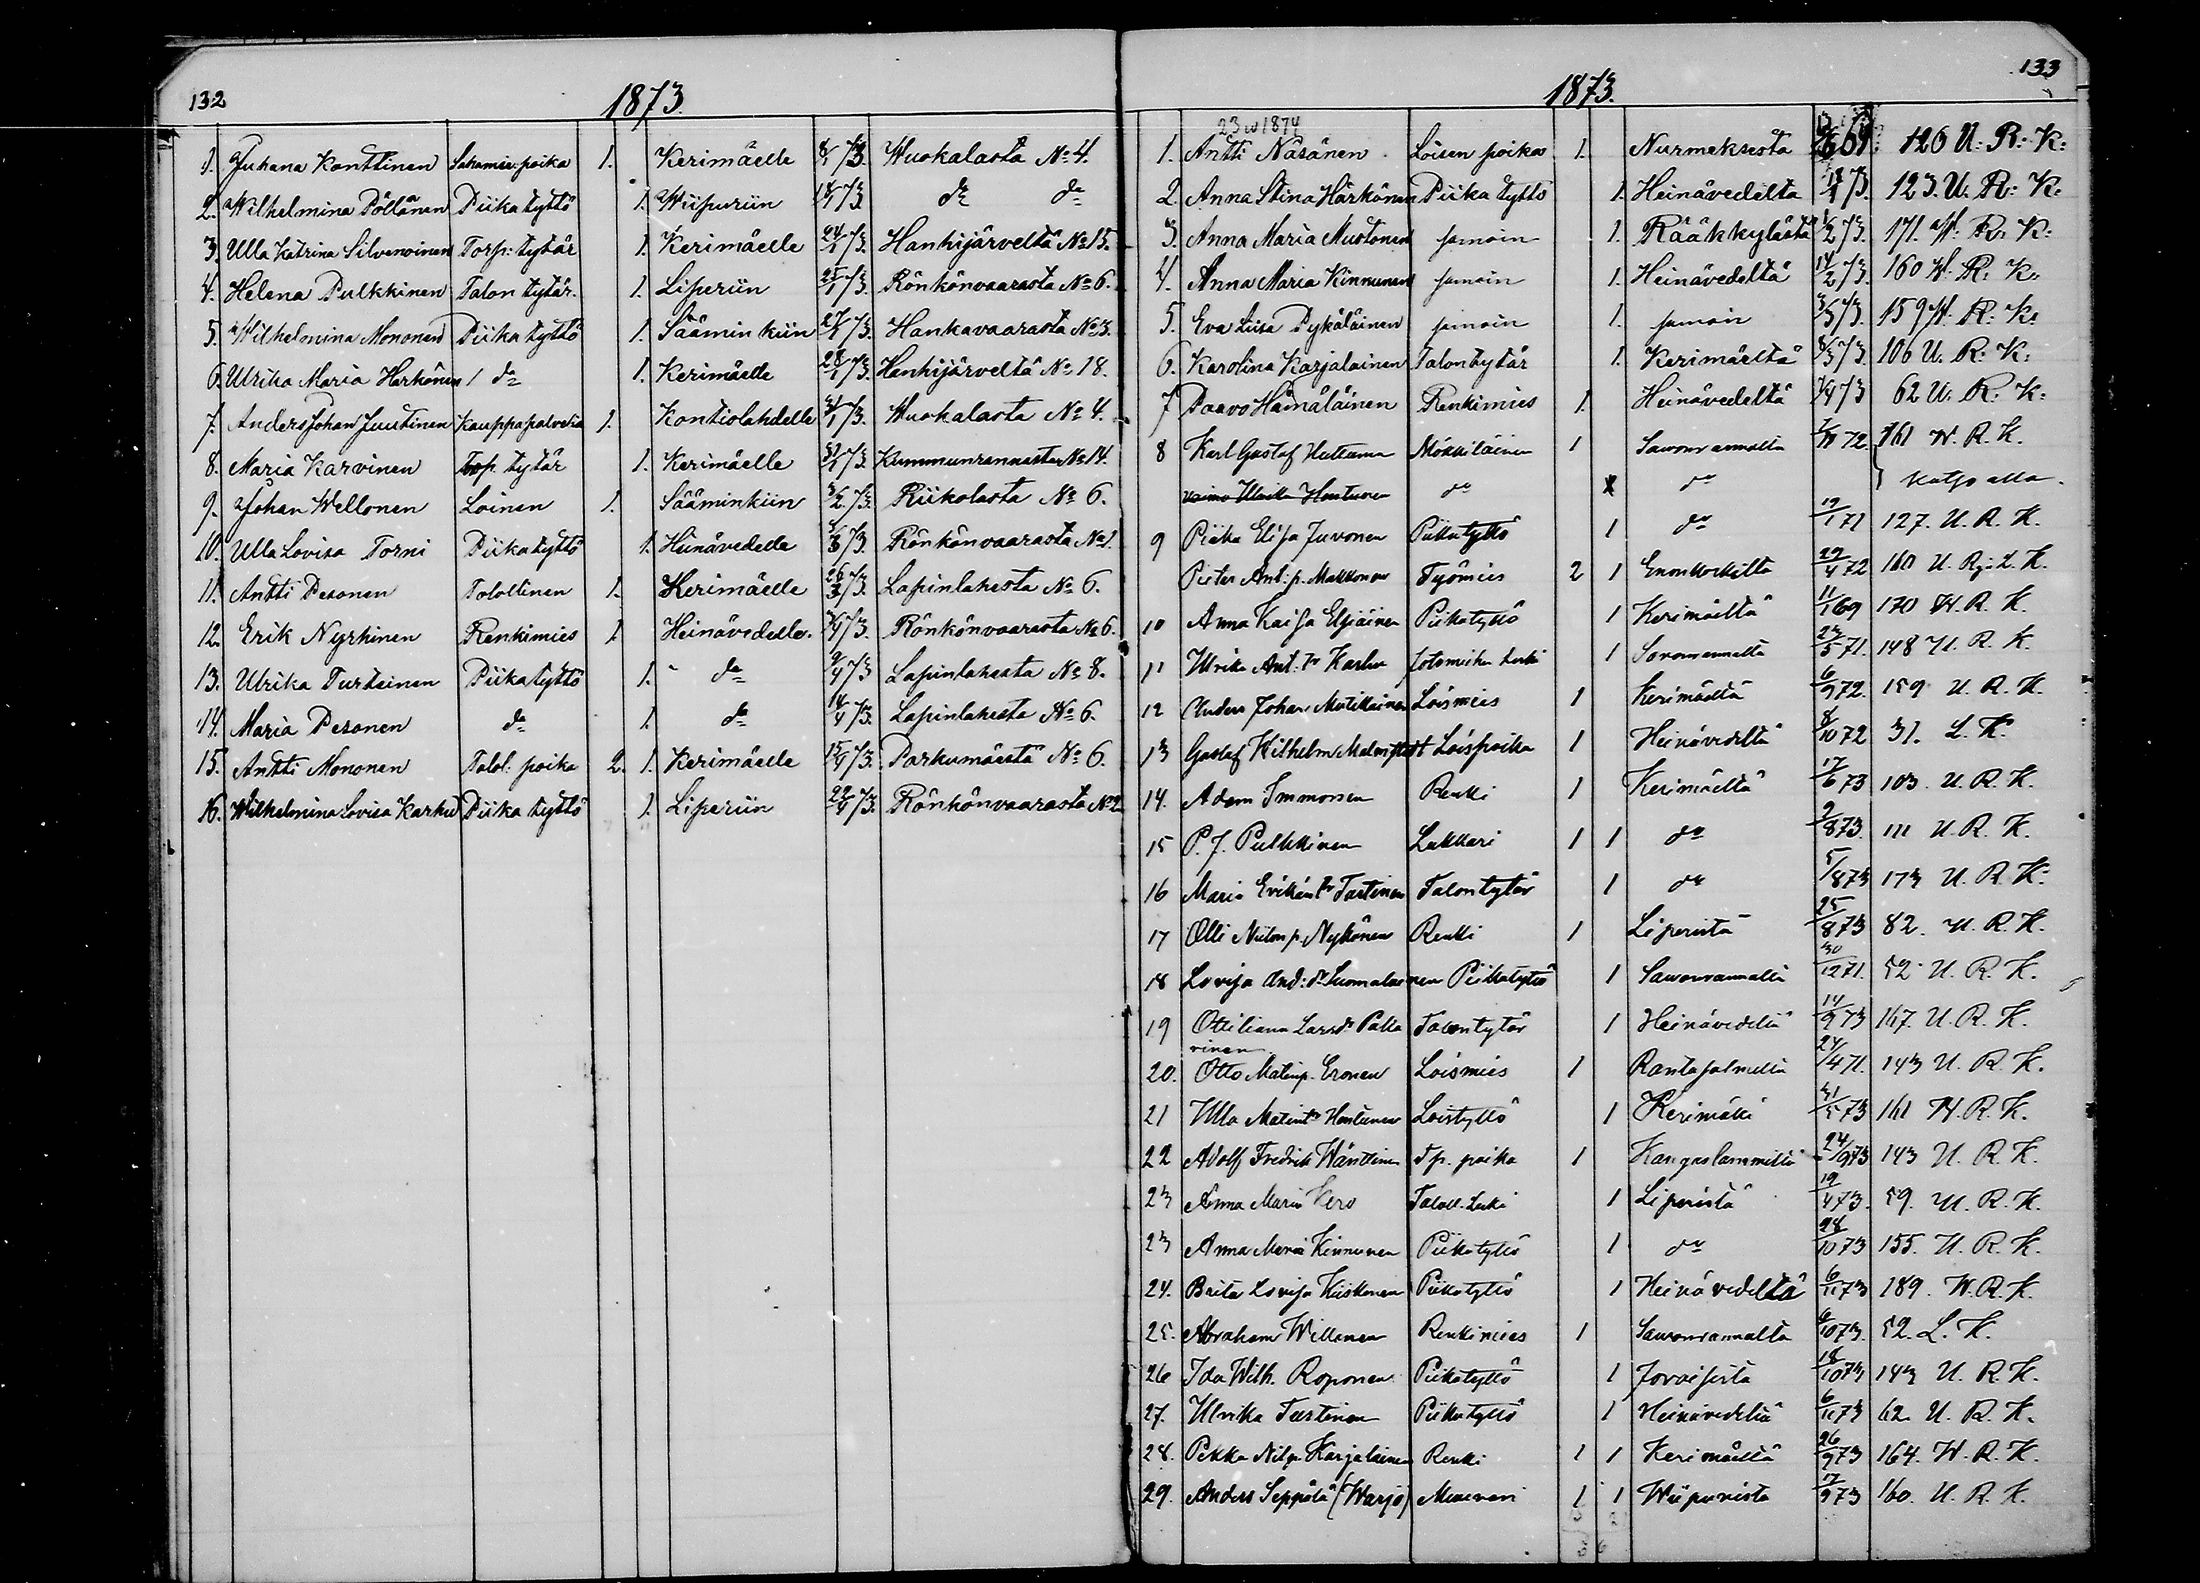 132
1873.
1. Juhana Konttinen Sahamie: poika 1. Kerimäelle 8/1 73. Wuokalasta No 4.
2. Wilhelmina Pöllänen Piika tyttö 1. Wiipuriin 18/1 73 do do
3. Ulla Katrina Silvenoinen Torp: tytär 1. Kerimäelle 24/1 73. Hanhijärveltä No 15.
4. Helena Pulkkinen Talon tytär. 1. Liperiin 25/1 73. Rönkönvaarasta No 6.
5. Wilhelmina Mononen Piika tyttö 1. Säämin kiin 27/1 73. Hankavaarasta No 3.
6. Ulrika Maria Harkönen do 1. Kerimäelle 28/1 73. Hanhijärveltä No 18.
7. Anders Johan Juutinen Kauppapalvelia 1. Kontiolahdelle 31/1 73. Wuokalasta No 4.
8. Maria Karvinen Torp. tytär 1. Kerimäelle 31/1 73. Kummunrannasta No 14.
9. Johan Wellonen Loinen 1. Sääminkiin 3/2 73. Riikolasta No 6.
10. Ulla Lovisa Torni Piikatyttö 1. Heinävedelle 73. Rönkönvaarasta No 1.
11. Antti Pesonen Talollinen 1. Kerimäelle 26/3 73. Lapinlahesta No 6.
12. Erik Nyrhinen Renkimies 1 Heinävedelle. 73. Rönkönvaarasta No 6.
13. Ulrika Turtiainen Piikatyttö 1. do 9/4 73 Lapinlahesta No 8.
14. Maria Pesonen do 1. do 14/4 73. Lapinlahesta No 6.
15. Antti Mononen Talol. poika 2. 1. Kerimäelle 15/4 73. Parkumäestä No 6.
16. Wilhelmina Lovisa Karhu Piika tyttö 1. Liperiin 22/4 73. Rönkönvaarasta No 2
133
1873.
23 w 1874
1. Antti Näsänen Loisen poika 1. Nurmeksesta 69. 126 U. R. K.
2. Anna Stina Härkönen Piika tyttö 1. Heinävedeltä 73. 123. U. R. K.
3. Anna Maria Mustonen samoin 1. Rääkkylästä 1/2 73. 171. W. R. K.
4. Anna Maria Kinnunen samoin 1. Heinävedeltä 14/2 73. 160 W. R. K.
5. Eva Liisa Pykäläinen samoin 1. samoin 3/3 73. 159 W. R. K.
6. Karolina Karjalainen Talontytär 1. Kerimäeltä 8/3 73. 106 U. R. K.
7 Paavo Hämäläinen Renkimies 1. Heinävedeltä 73 62 U. R. K.
8 Karl Gustaf Huttunen Mökkiläinen 1 Sawonrannalta 72. 161 W. R. K.
vaimo Ulrika Hontunen do x do katso alla.
9 Piika Elisa Juvonen Piikatyttö 1 do 19/1 71 127. U. R. K.
Pieter Ant: p. Makkonen Työmies 2 1 Enonkoskilta 29/4 72 160 U. R. K.
10 Anna Kaisa Eljäinen Piikatyttö 1 Kerimäeltä 11/1 69 170 W. R. K.
11 Ulrika Ant. tr Karhu sotamiehen leski 1 Savonrannalta 23/5 71. 148 U. R. K.
12 Anders Johan Matikainen Loismies 1 Kerimäeltä 6/9 72. 159 U. R. K.
13 Gustaf Wilhelm Malmstedt Loispoika 1 Heinävedeltä 8/10 72 31. L. K.
14. Adam Immonen Renki 1 Kerimäeltä 17/6 73 103. U. R. K.
15 P. J. Pulkkinen Lukkari 1 1 do 2/8 73. 111 U. R. K.
16 Maria Erikin tr Tartinen Talontytär 1 do 5/8 73 173 U. R. K.
17 Olli Niilon p. Nykänen Renki 1 Liperistä 25/8 73 82. U. R. K.
18 Lovisa And: dr Suomalainen Piikatyttö 1 Sawonrannalta 30/12 71. 52 U. R. K.
19 Ottiliana Larsdr Pakarinen Talontytär 1 Heinävedeltä 14/9 73 167. U. R. K.
20. Otto Matinp. Eronen Loismies 1 Rantasalmelta 24/4 71. 143 U. R. K.
21 Ulla Matintr Hontunen Loistyttö 1 Kerimäki 31/5 73 161 W. R. K.
22 Adolf Fredrik Wänttinen Tp. poika 1 Kangaslammilta 24/9 73 143 U. R. K.
23 Anna Maria Vero Taloll. Leski 1 Liperistä 19/4 73. 59. U. R. K.
23 Anna Maria Kinnunen Piikatyttö 1 do 28/10 73 155. U. R. K.
24. Brita Lovisa Kiiskinen Piikatyttö 1 Heinävedeltä 6/11 73 189. W. R. K.
25. Abraham Willanen Renkimies 1 Sawonrannalta 6/10 73. 52. L. K.
26 Ida Wilh. Roponen Piikatyttö 1 Joroisista 18/10 73 143 U. R. K.
27. Ulrika Turtinen Piikatyttö 1 Heinävedeltä 6/11 73 62 U. R. K.
28. Pekka Nilsp. Karjalainen Renki 1 1 Kerimäeltä 26/9 73 164. W. R. K.
29. Anders Seppälä (Warjo) Muurari 1 1 Wiipurista 17/9 73 160. U. R. K.